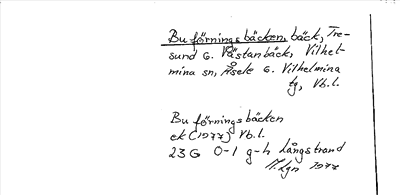 Buförningsbäcken, bäck, Tre-
sund G. Västanbäck, Vilhel-
mina sn, Åsele G. Vilhelmina
tg, Vb.l.
Buförningsbäcken
ek (1977) Vb.l.
23G 0-1 g-h Långstrand
1977